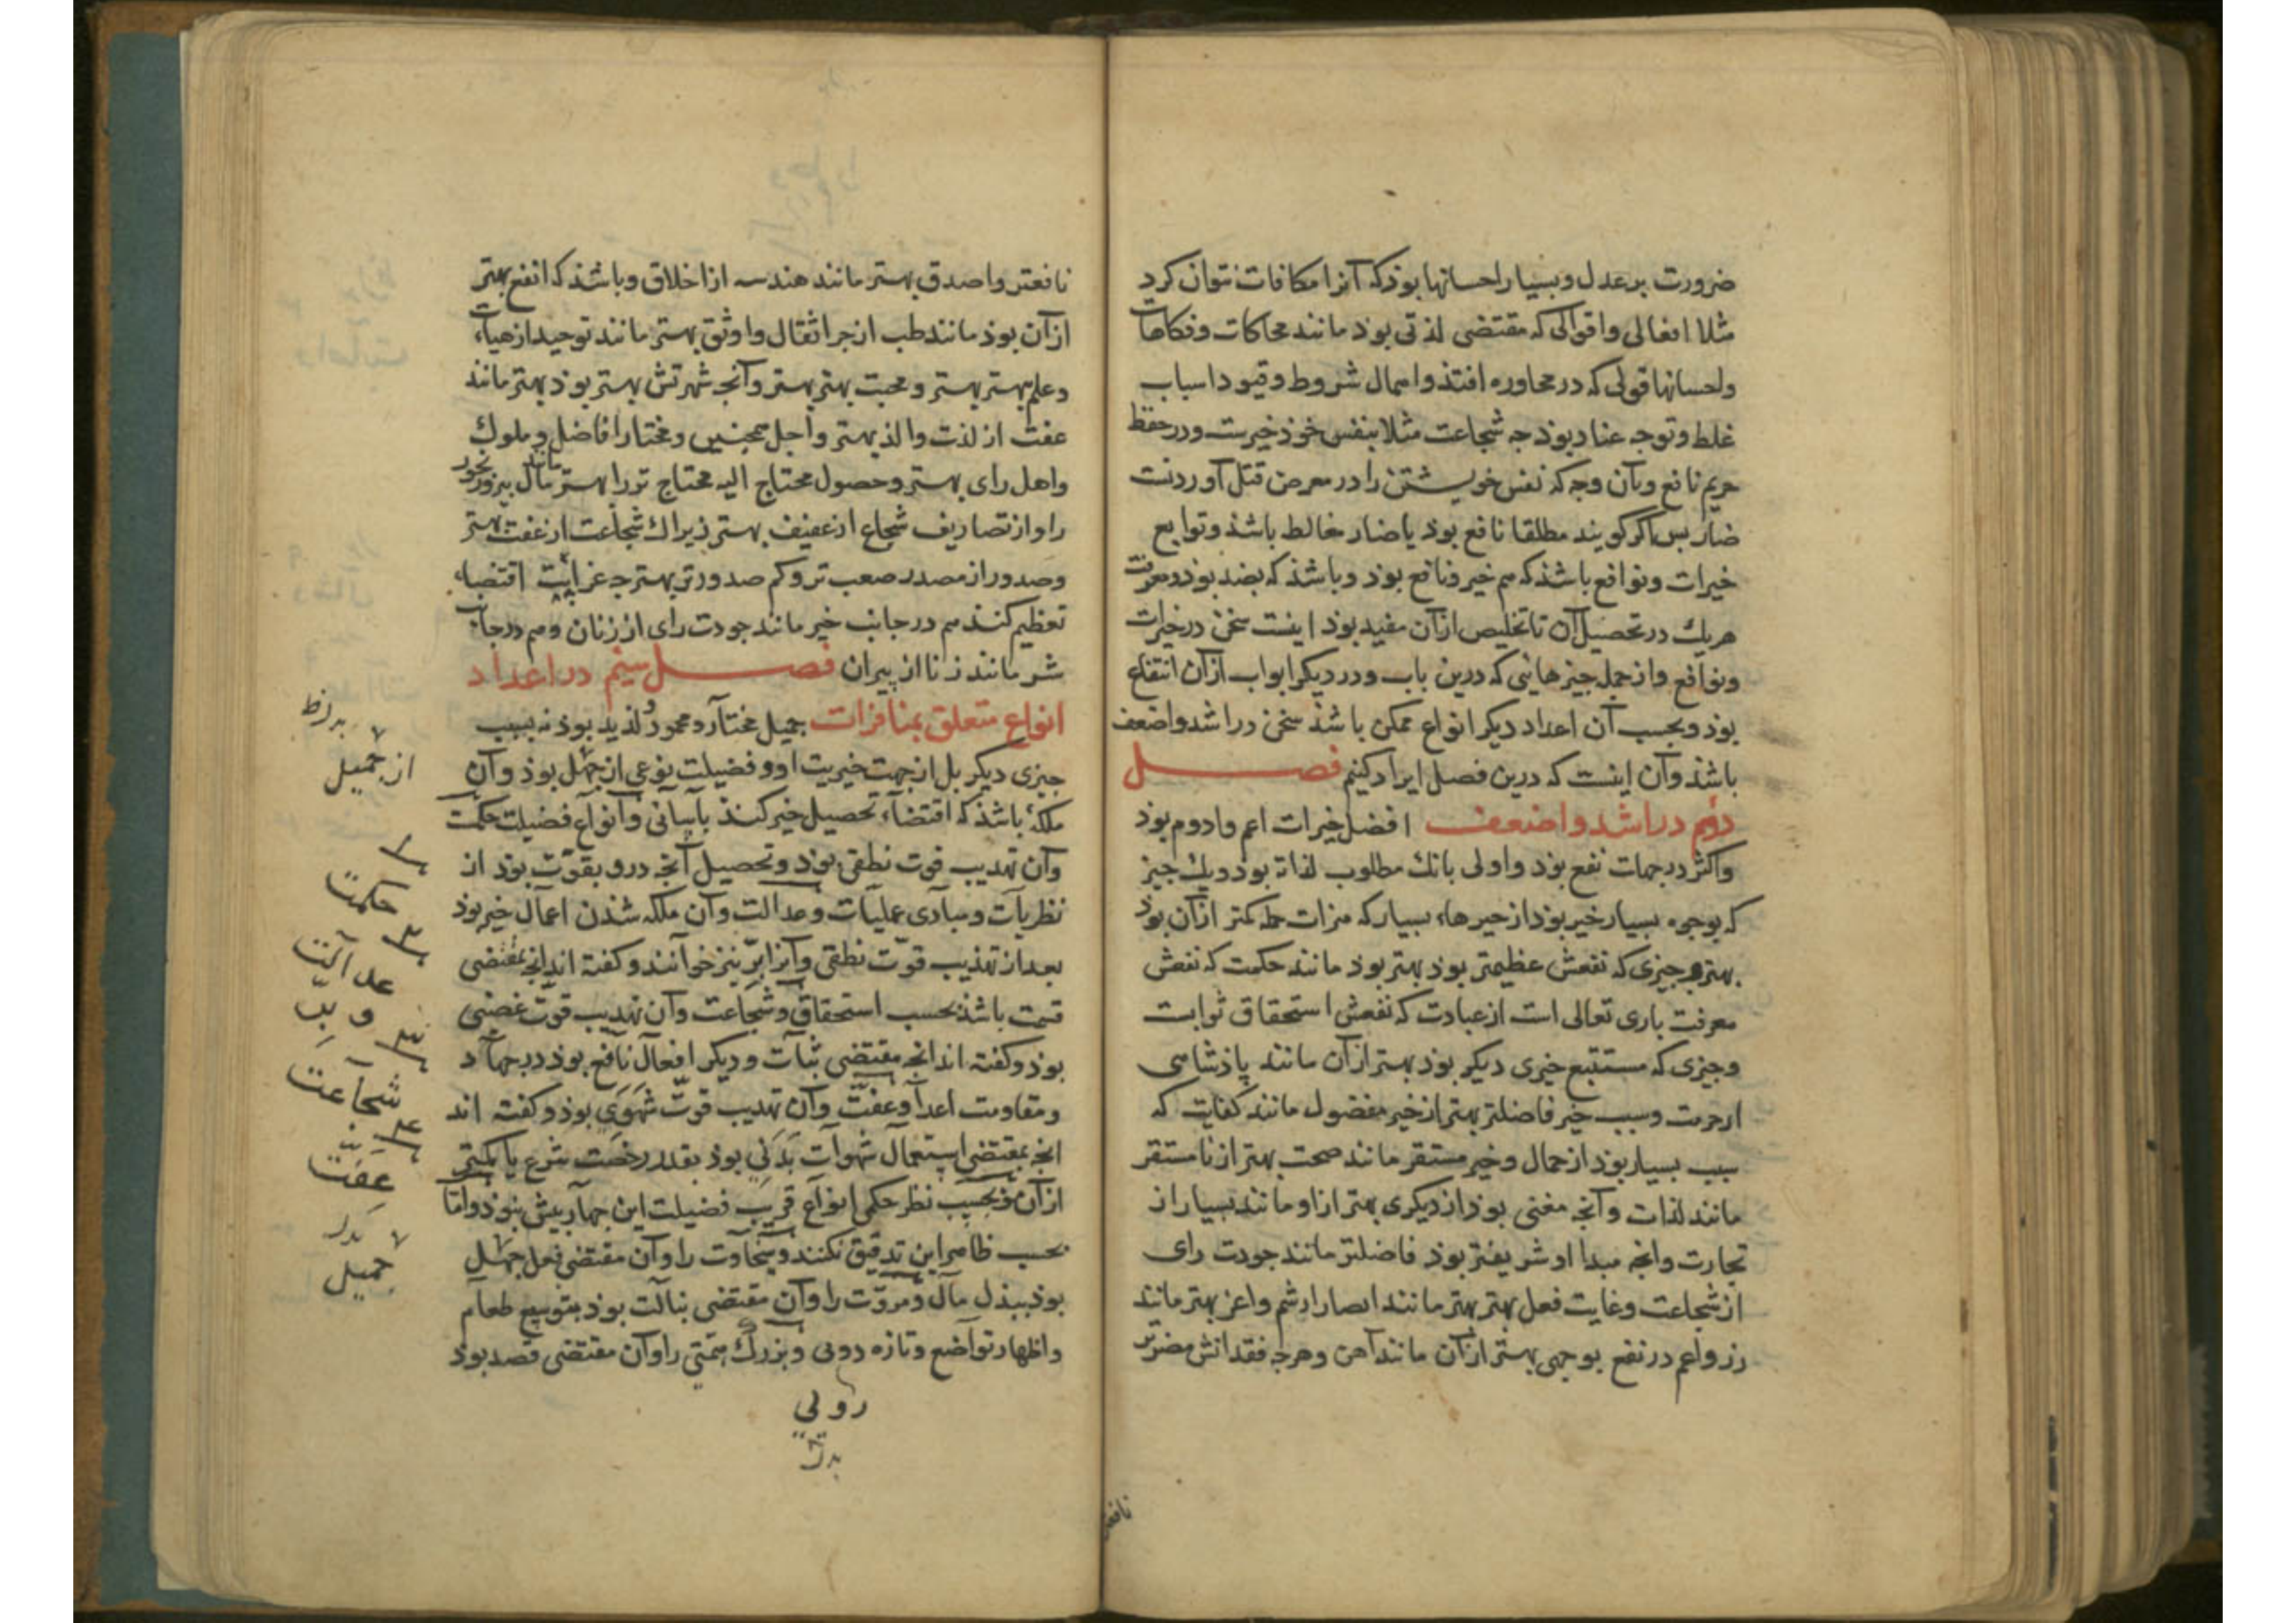 ضرورت بر عدل و بسیار احسانها بوذ که آنرا مکافات نتوان کرد
مثلا افعالی و اقوالی که مقتضی لذتی بوذ مانند محاکات و فکاهات
و احسانها قولی که در محاوره افتذ و اهمال شروط و قیود و اسباب
غلط و توجه عناد بوذ جه شجاعت مثلا بنفس خوذ خیرست و در حفظ
حریم نافع و بآن وجه که نفس خویشتن را در معرض قتل آوردنست
ضار بس اکر کویند مطلقا نافع بوذ یا ضار مغالط باشذ و توابع
خیرات و نوافع باشذ که هم خیر و نافع بوذ و باشذ که بضد بوذ و معرفت
هریك در تحصیل آن تا تخلیص از آن مفید بوذ اینست سخن در خیرات
و نوافع و از جمله جیزهایی که درین باب و در دیکر ابواب از آن انتفاع
بوذ و بحسب آن اعداد دیکر انواع ممکن باشذ سخن در اشد و اضعف
باشذ و آن اینست که درین فصل ایراد کنیم فصل
دوم در اشد و اضعف افضل خیرات اعم و ادوم بوذ
و اکثر در جهات نفع بوذ و اولی بانك مطلوب لذاته بوذ و یك جیز
که بوجوه بسیار خیر بوذ از خیرهاء بسیار که جمله کمتر از آن بوذ
بهتر و جیزی که نفعش عظیمتر بوذ بهتر بوذ مانند حکمت که نفعش
معرفت باری تعالی است از عبادت که نفعش استحقاق ثوابست
و جیزی که مستتبع خیری دیکر بوذ بهتر از آن مانند پاذشاهی
از حرمت و سبب خیر فاضلتر بهتر از خیر مفضول مانند کفایت که
سبب یسار بوذ از جمال و خیر مستقر مانند صحت بهتر از نامستقر
مانند لذات و آنجه مغنی بوذ از دیکری بهتر از او مانند یسار از
تجارت و انجه مبدا او شریفتر بوذ فاضلتر مانند جودت رای
از شجاعت و غایت فعل بهتر بهتر مانند ابصار از شم و اعز بهتر مانند
زر و اعم در نفع بوجهی بهتر از آن مانند آهن و هرجه فقدانش مضرتر
نافعتر
نافعتر و اصدق بهتر مانند هندسه از اخلاق و باشذ که انفع بهتر
از آن بوذ مانند طب از جر اثقال و اوثق بهتر مانند توحید از هیأت
و علم بهتر بهتر و محبت بهتر بهتر و آنجه شهرتش بهتر بوذ بهتر مانند
عفت از لذت و الذ بهتر و اجل همجنین و مختار افاضل و ملوك
و اهل رای بهتر و حصول محتاج الیه محتاج تر را بهتر مانند مال
را و از تصاریف شجاع از عفیف بهتر زیراك شجاعت از عفت بهتر
و صدور از مصدر صعب تر و کم صدورتر بهتر جه غرابت اقتضاء
تعظیم کنذ هم در جانب خیر مانند جودت رای از زنان و هم در جانب
شر مانند زنا از پیران فصل سیم در اعداد
انواع متعلق بمنافرات جمیل مختار و محمود و لذیذ بوذ نه بسبب
جیزی دیکر بل از جهت خیریت او و فضیلت نوعی از جمیل بوذ و آن
ملکۀ باشذ که اقتضاء تحصیل خیر کنذ بآسانی و انواع فضیلت حکمت
و آن تهذیب قوت نطقی بوذ و تحصیل آنجه درو بقوت بوذ از
نظریات و مبادی عملیات و عدالت و آن ملکه شذن اعمال خیر بوذ
بعد از تهذیب قوت نطقی و آنرا برّ نیز خوانند و کفته اند انجه مقتضی
قسمت باشذ بحسب استحقاق و شجاعت و آن تهذیب قوت غضبی
بوذ و کفته اند انجه مقتضی ثبات و دیکر افعال نافع بوذ در جهاد
و مقاومت اعدا و عفت و آن تهذیب قوت شهوی بوذ و کفته اند
انجه بمقتضی استعمال شهوات بدنی بوذ بقدر رخصت شرع یا کمتر
از آن و بحسب نظر حکمی انواع قریب فضیلت این جهار بیش نبوذ و اما
بحسب ظاهر این تدقیق نکنند و سخاوت را و آن مقتضی فعل جمیل
بوذ ببذل مال و مروت را و آن مقتضی نبالت بوذ بتوسیع طعام
و اظهار تواضع و تازه رویی و بزرك همتی را و آن مقتضی قصد بوذ
از جمیل
حکمت
عدالت
و برّ
شجاعت
عفّت
جمیل
رویی